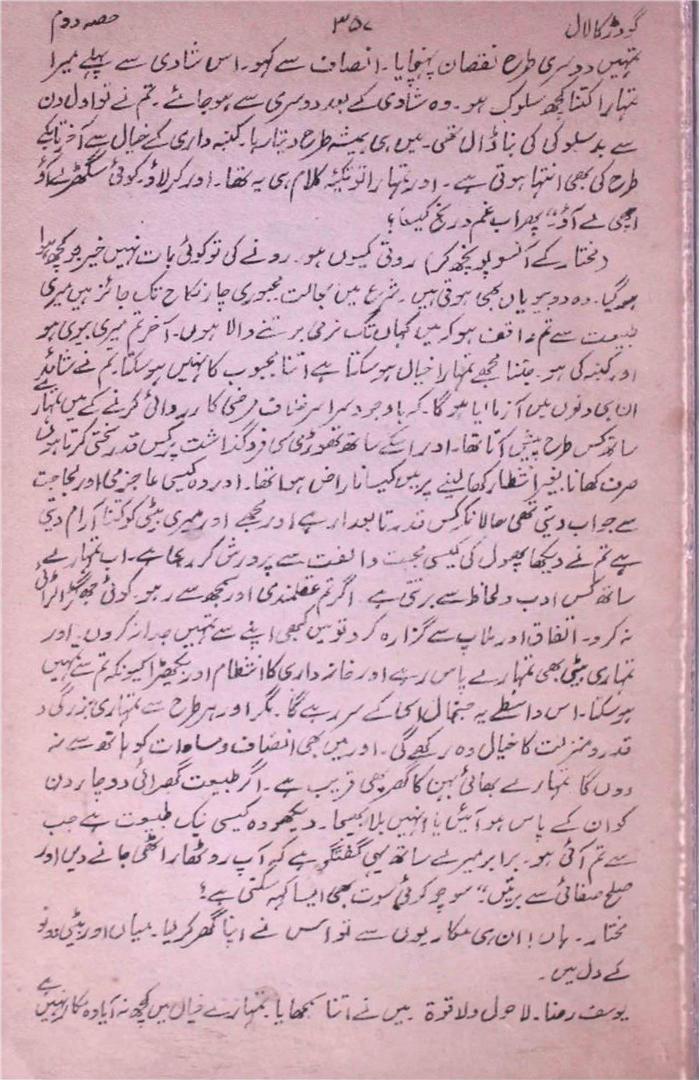 گودڑ کا لال ۳۵۷ حصہ دوم
تمہیں دوسری طرح نقصان پہنچایا۔ انصاف سے کہو۔ اس شادی سے پہلے میرا
تمہارا کتنا کچھ سلوک ہو۔ وہ شادی کے بعد دوسری سے ہو جائے۔ تم نے تو اول دن
سے بدسلوکی کی بنا ڈال تھی۔ میں ہی ہمیشہ طرح دیتا رہا۔ کنبہ داری کے خیال سے آخر
طرح کی بھی انتہا ہوتی ہے۔ اور تمہارا تو تکیہ کلام ہی یہ تھا۔ اور کر لاؤ۔ کوئی سگھڑ لے آؤ
اچھی لے آؤ۔" پھر اب غم در نج کیسا؟
(مختار کے آنسو پونچھ کر) روتی کیوں ہو۔ رونے کی تو کوئی بات نہیں خیر جو کچھ ہوا
ہو گیا۔ وہ دو بیویاں بھی ہوتی ہیں۔ شرع میں بحالت مجبوری چار نکاح تک جائز ہیں میری
طبیعت سے تم واقف ہو کہ میں کہاں تک نرمی برتنے والا ہوں۔ آخر تم میری بیوی ہو
اور کنبہ کی ہو۔ جتنا مجھے تمہارا خیال ہو سکتا ہے اتنا محبوب کا نہیں ہو سکتا۔ تم نے شائد
ان ہی دنوں میں آزمایا ہو گا۔ کہ باوجود سراسر خلاف مرضی کارروائی کرنے کے میں تمہارے
ساتھ کس طرح پیش آتا تھا۔ اور اسکے ساتھ تھوڑی سی فروگذاشت پر کس قدر سختی کرتا ہوں
صرف کھانا بغیر انتظار کھا لینے پر میں کیسا ناراض ہوا تھا۔ اور وہ کیسی عاجزی اور لجاجت
سے جواب دیتی تھی حالانکہ کس قدر تابعدار ہے اور مجھے اور میری بیٹی کو کتنا آرام دیتی
ہے تم نے دیکھا پھول کی کیسی محبت و الفت سے پرورش کر رہی ہے۔ اب تمہارے
ساتھ کس ادب و لحاظ سے برتی ہے۔ اگر تم عقلمندی اور سمجھ سے رہو۔ کوئی جھگڑا لڑائی
نہ کرو۔ اتفاق اور ملاپ سے گزارہ کرو تو میں کبھی اپنے سے تمہیں جدا نہ کروں۔ اور
تمہاری بیٹی بھی تمہارے پاس رہے اور خانہ داری کا انتظام اور بکھیڑا کیونکہ تم سے نہیں
ہو سکتا۔ اس واسطے یہ جنجال اسی کے سر رہے گا۔ مگر اور ہر طرح سے تمہاری بزرگی و
قدر و منزلت کا خیال وہ رکھے گی۔ اور میں بھی انصاف و مساوات کو ہاتھ سے نہ
دوں گا تمہارے بھائی بہن کا گھر بھی قریب ہے۔ اگر طبیعت گھبرائی دو چار دن
کو ان کے پاس ہو آئیں یا انہیں بلا بھیجا۔ دیکھو وہ کیسی نیک طبیعت ہے جب
سے تم آئی ہو۔ برابر میرے ساتھ یہی گفتگو ہے کہ آپ روٹھا راٹھی جانے دیں اور
صلح صفائی سے برتیں۔" سوچو کوئی سوت بھی ایسا کہہ سکتی ہے؟
مختار۔ ہاں! ان ہی مکاریوں سے تو اس نے اپنا گھر کر لیا۔ میاں اور بیٹی دونو
کے دل میں۔
یوسف رضا۔ لا حول ولا قوۃ میں نے اتنا سمجھایا۔ تمہارے خیال میں کچھ نہ آیا وہ مکار نہیں ہے